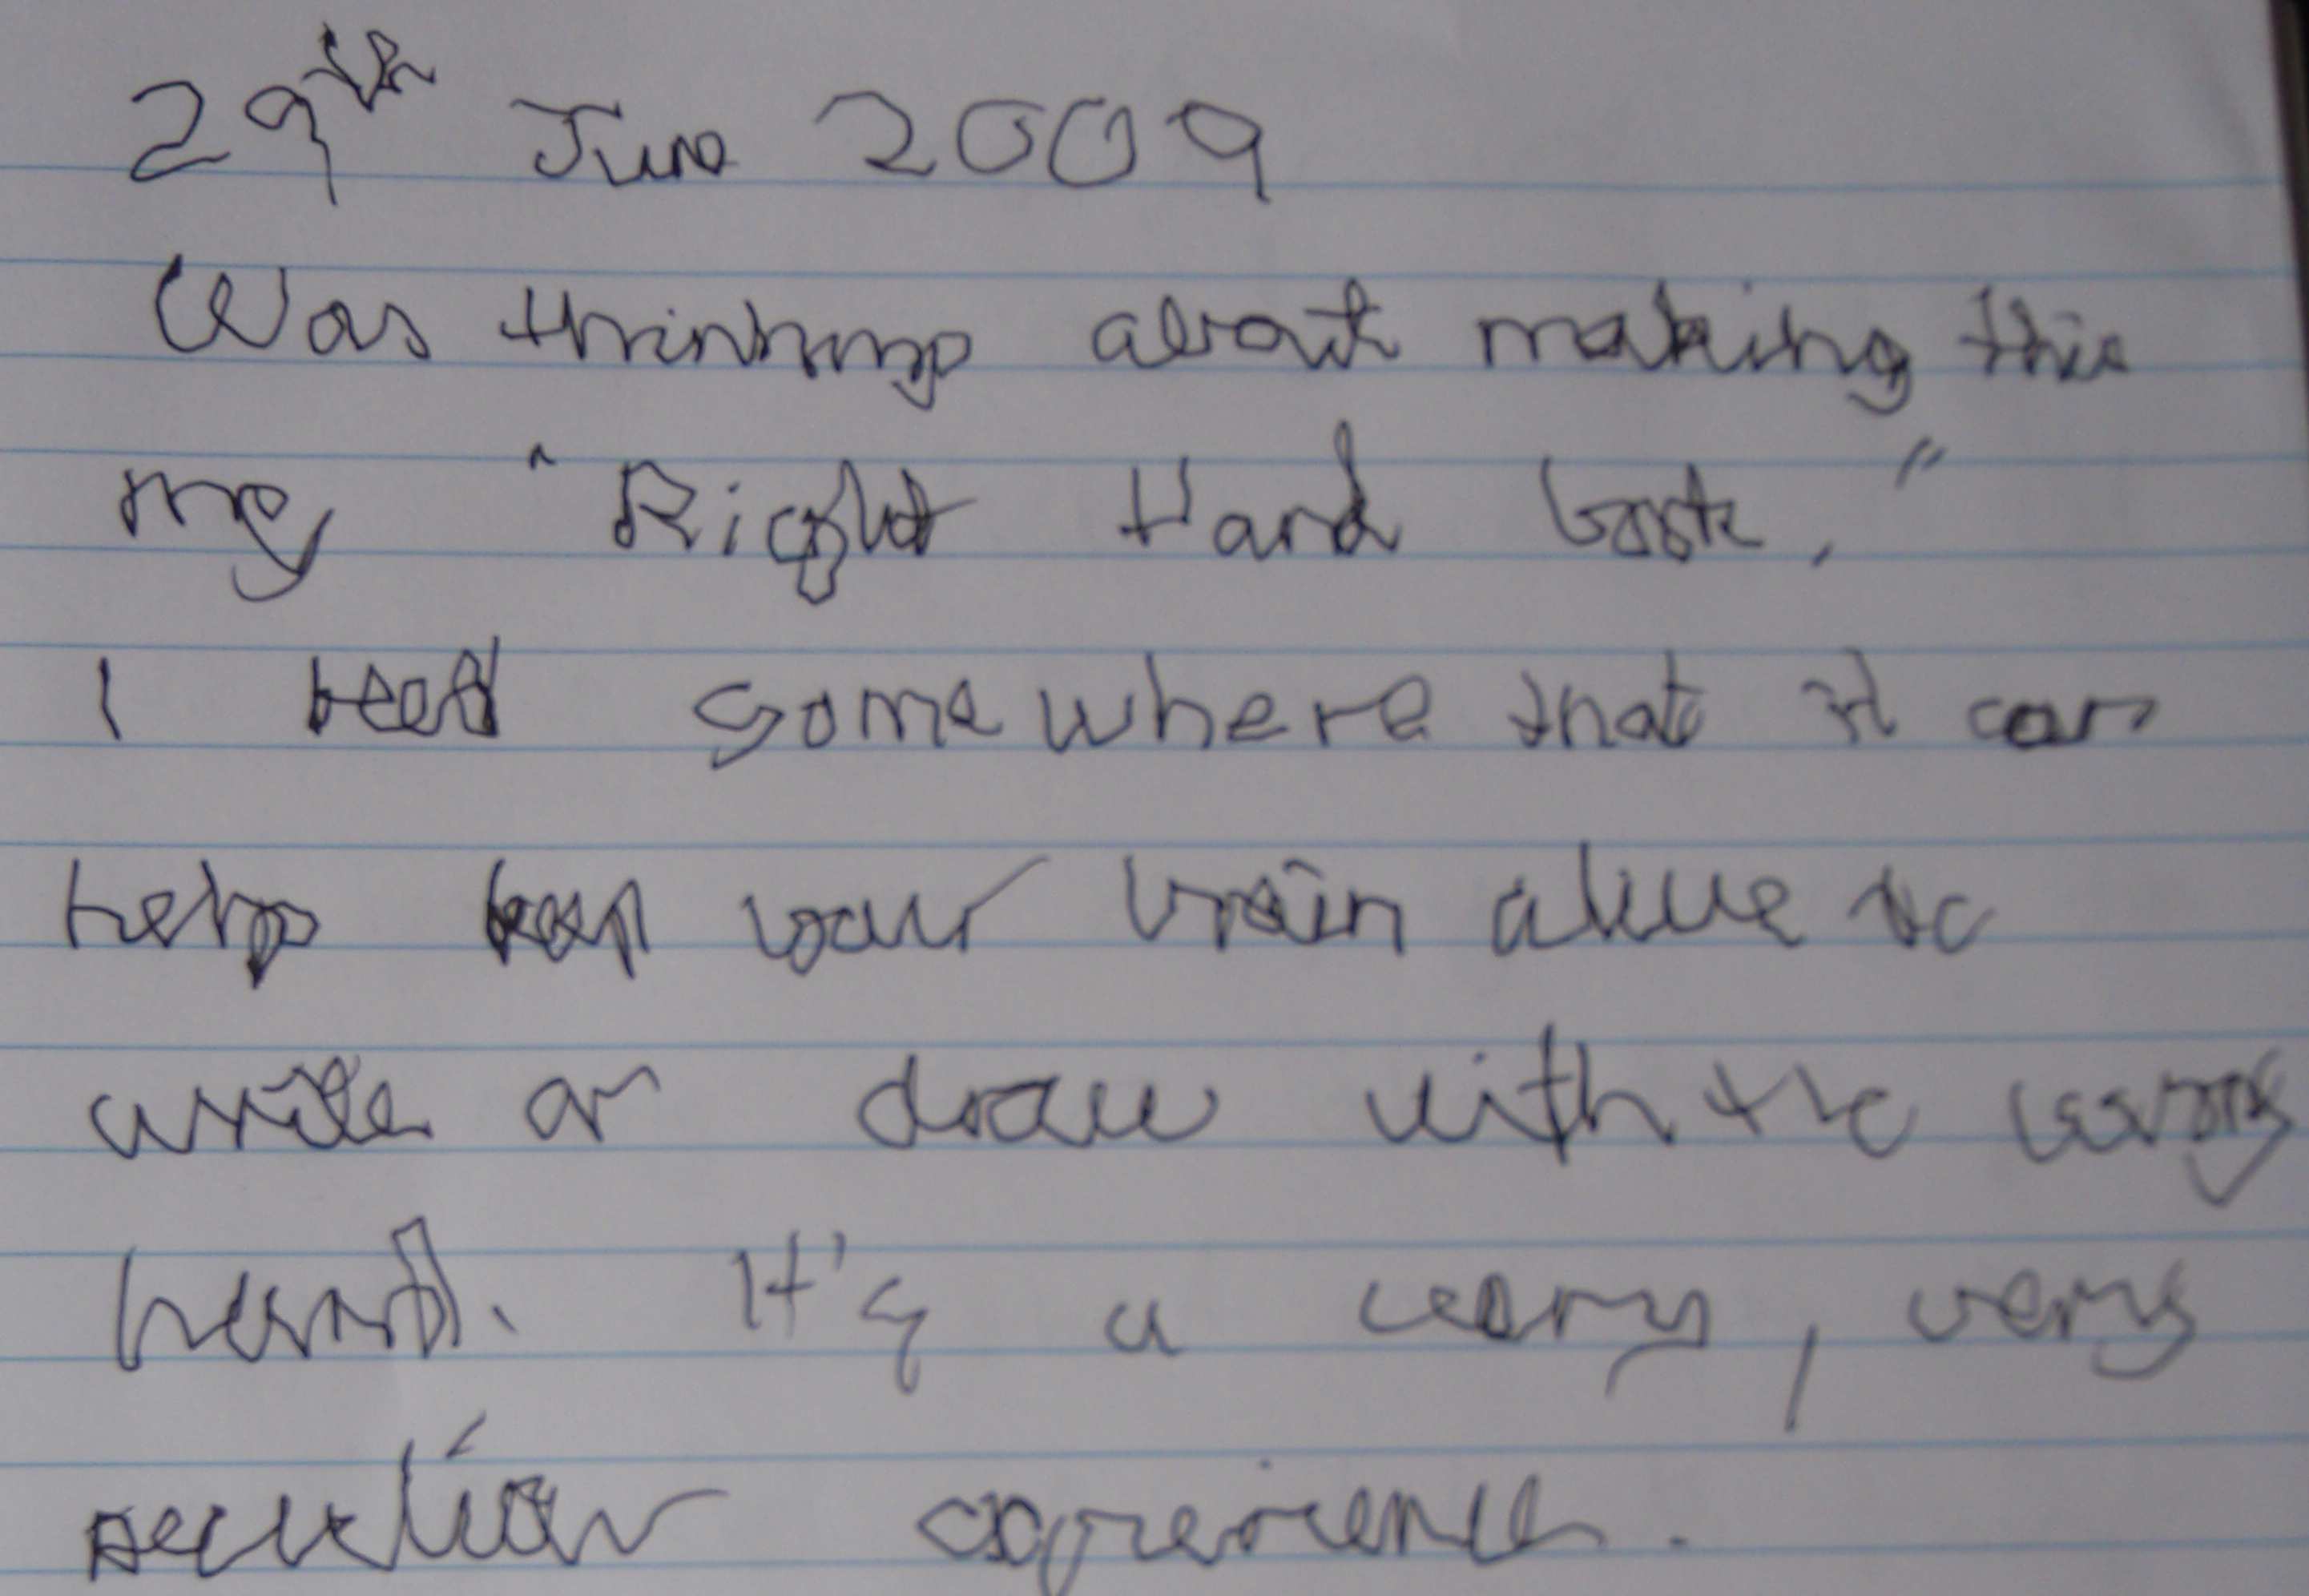 29th June 2009
Was thinking about making this
my "Right Hand book."
I read somewhere that it can
help keep your brain alive to
write or draw with the wrong
hand. It's a very, very
peculiar experience.